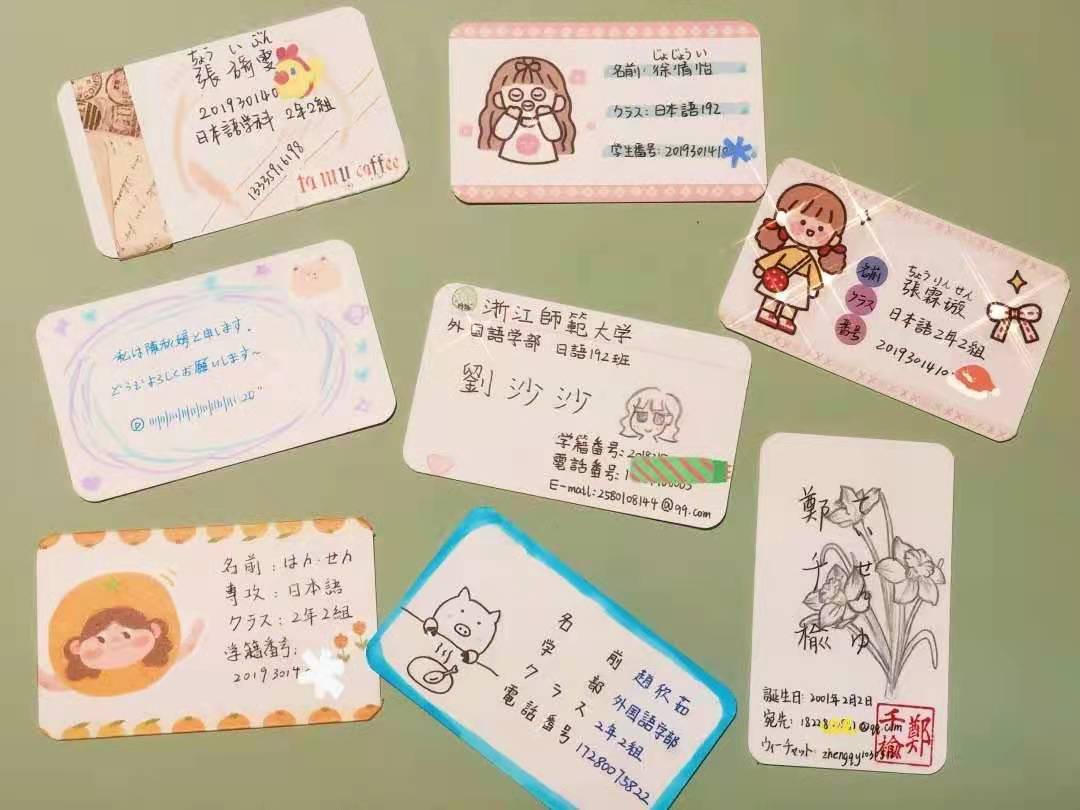 ちょう い ぶん
張 雯
201930140
日本語学科 2年2組
13335916198
ta mu coffee
じょじょうい
名前: 徐情怡
クラス: 日本語192
学生番号: 2019301410
名前
クラス
番号
ちょうりんせん
張霖璇
日本語2年2組
2019301410
私は陳 婷と申します。
どうぞよろしくお願いします~
20"
浙江師範大学
外国語学部 日語192班
劉沙沙
学籍番号: 2018
電話番号: 1
E-mail: 2580108144@qq.com
名前: はん・せん
専攻: 日本語
クラス: 2年2組
学籍番号:
20193014
名前 趙欣茹
学部 外国語学部
クラス 2年2組
電話番号 17280075822
鄭千榆
てい せんゆ
誕生日: 2001年2月2日
宛先: 18228 1@qq.com
ウィーチャット: zhengqy
鄭千榆